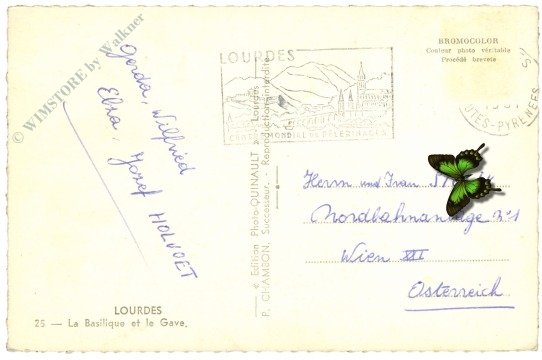 © WIMSTORE by Walkner
Gerda, Wilfried
Elsa, Josef HOLVOET
LOURDES
25 – La Basilique et le Gave.
© Edition Photo-QUINAULT - Lourdes
P. CHAMSON, Successeur. Reproduction interdite
LOURDES
CENTRE MONDIAL DE PELERINAGES
BROMOCOLOR
Couleur photo véritable
Procédé breveté
PYRENEES
Herrn und Frau
Nordbahnanlage No 1
Wien III
Österreich